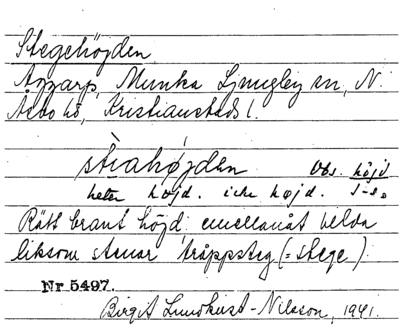 Stegehöjden
Axxarp, Munka Ljungby sn, N.
Åsbo hd, Kristianstads l.
stèahø̀jden Obs. höjd
heter höjd. icke højd.
Rätt brant höjd emellanåt bilda
liksom stenar trappsteg (= stege)
Nr 5497.
Birgit Lundkvist-Nilsson, 1941.